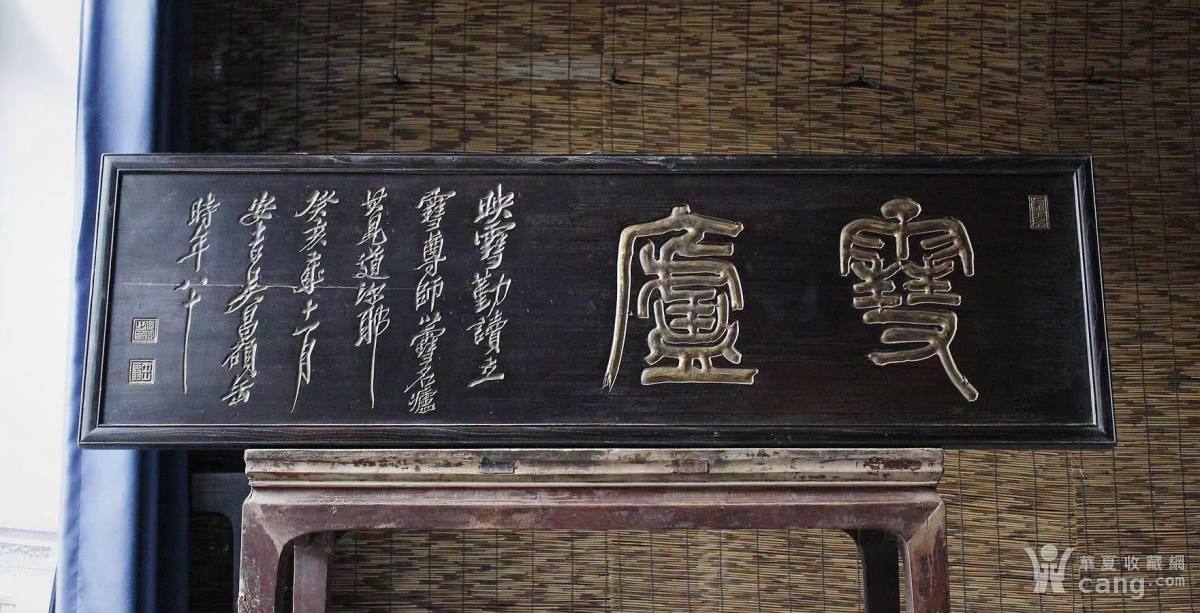 雪廬
映雪勤讀立
雪尊師以雪名廬
其見道深耶
癸亥歲十一月
安吉吳昌碩缶
時年八十
華夏收藏網
cang.com